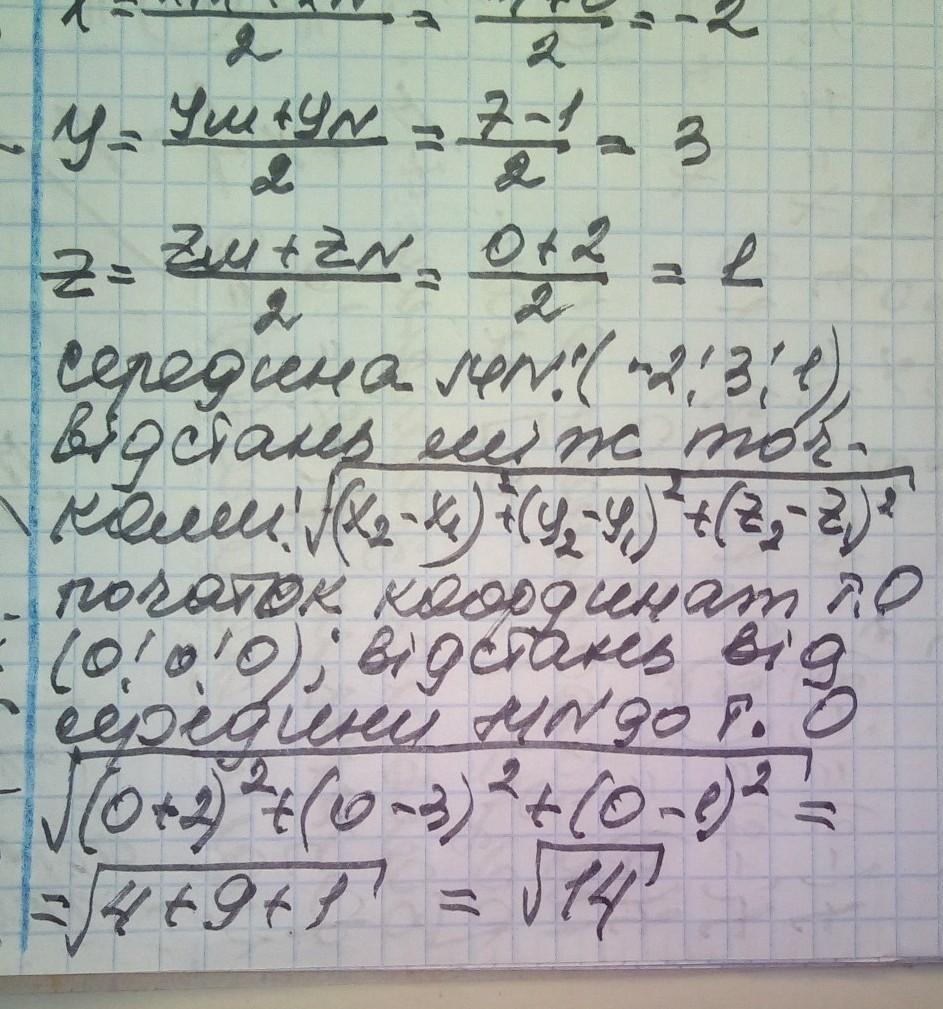 = 2 = 2 = -2
y = (yм + yN)/2 = (7 - 1)/2 = 3
z = (zм + zN)/2 = (0 + 2)/2 = 1
середина MN: (-2; 3; 1)
відстань між точ-
ками: √((x₂ - x₁)² + (y₂ - y₁)² + (z₂ - z₁)²)
початок координат т.О
(0; 0; 0); відстань від
середини MN до т. О
√((0+2)² + (0-3)² + (0-1)²) =
= √(4+9+1) = √14